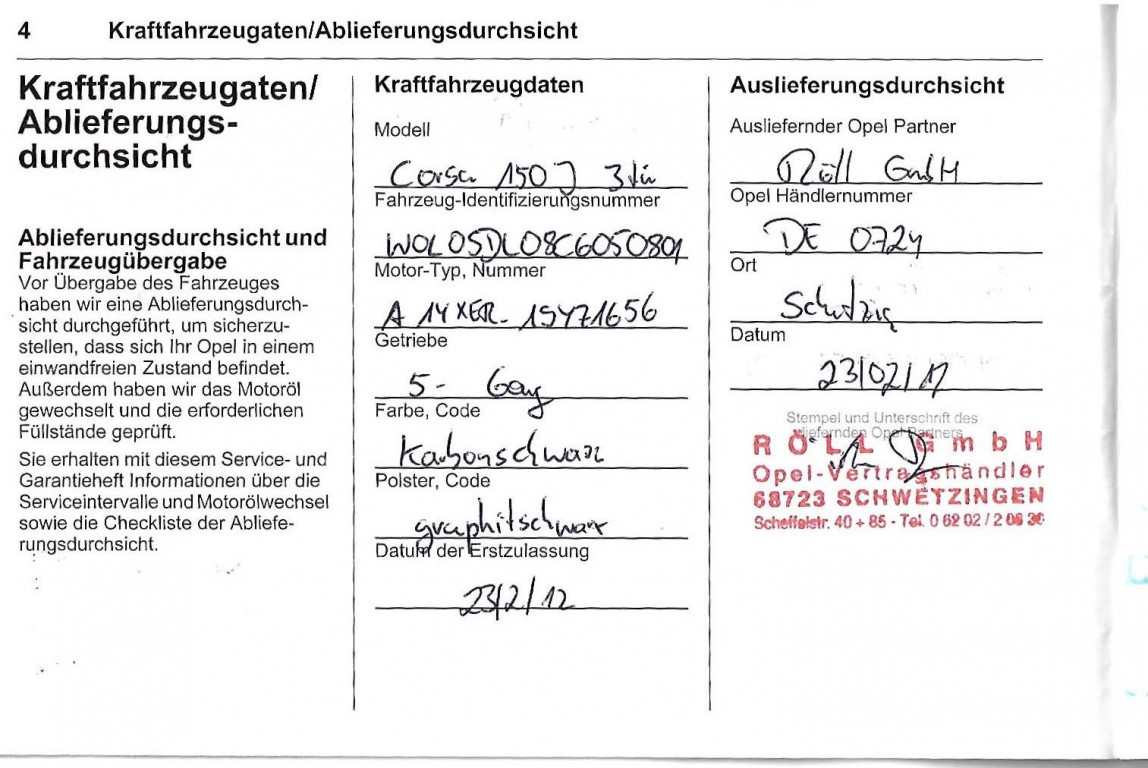 4
Kraftfahrzeugaten/Ablieferungsdurchsicht
Kraftfahrzeugaten/
Ablieferungs-
durchsicht
Ablieferungsdurchsicht und
Fahrzeugübergabe
Vor Übergabe des Fahrzeuges
haben wir eine Ablieferungsdurch-
sicht durchgeführt, um sicherzu-
stellen, dass sich Ihr Opel in einem
einwandfreien Zustand befindet.
Außerdem haben wir das Motoröl
gewechselt und die erforderlichen
Füllstände geprüft.
Sie erhalten mit diesem Service- und
Garantieheft Informationen über die
Serviceintervalle und Motorölwechsel
sowie die Checkliste der Abliefe-
rungsdurchsicht.
Kraftfahrzeugdaten
Modell
Corsa 150 J 3tü
Fahrzeug-Identifizierungsnummer
W0L0SDL08C6050801
Motor-Typ, Nummer
A 14 XER - 19Y71656
Getriebe
5- Gang
Farbe, Code
Karbonschwarz
Polster, Code
graphitschwarz
Datum der Erstzulassung
23/2/12
Auslieferungsdurchsicht
Ausliefernder Opel Partner
Röll GmbH
Opel Händlernummer
DE 0724
Ort
Datum
23/02/12
Stempel und Unterschrift des
ausliefernden Opel Partners
RÖLL GmbH
Opel-Vertragshändler
68723 SCHWETZINGEN
Scheffelstr. 40 + 85 - Tel. 0 62 02 / 2 06 30